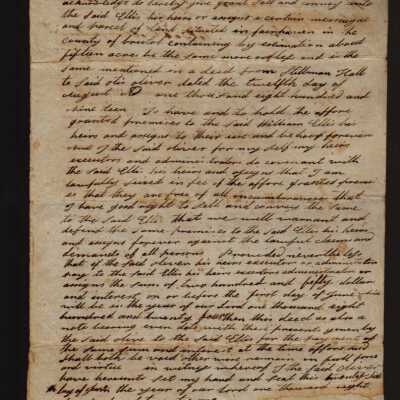 acknowledge to hereby give grant sell and convey unto
the said Ellis his heirs or assigns a certain messuage
and parcel of land situated in fairhaven in the
county of bristol containing by estimation about
fifteen acres be the same more or less and is the
same mentioned in a deed from Stillman Hall
to said dated the twelfth day of
August AD one thousand eight hundred and
nineteen To have and to hold the affore
granted premises to the said William Ellis his
heirs and assigns to their use and be hoof forever
and I the said oliver for my self my heirs
executors and administrators do covenant with
the said Ellis his heirs and assigns that I am
lawfully seized in fee of the affore granted premi
ses that they are free of all incumbrances that
I have good right to sell and convey the same
to the said Ellis That we will warrant and
defend the same premises to the said Ellis his heirs
and assigns forever against the lawful claims and
demands of all persons Provided nevertheless
that if the said oliver his heirs executors or administrators
pay to the said Ellis his heirs executors administrators or
assigns the sum of two hundred and fifty dollars
and interest on or before the first day of which
will be in the year of our lord one thousand eight
hundred and twenty four then this deed as also a
note bearing even date with these presents given by
the said oliver to the said Ellis for the payment of
the same sum and interest at the time afforesaid
shall both be void otherwise remain in full force
and virtue in witness whereof I the said Oliver
have hereunto set my hand and seal this
day of the year of our Lord one thousand eight